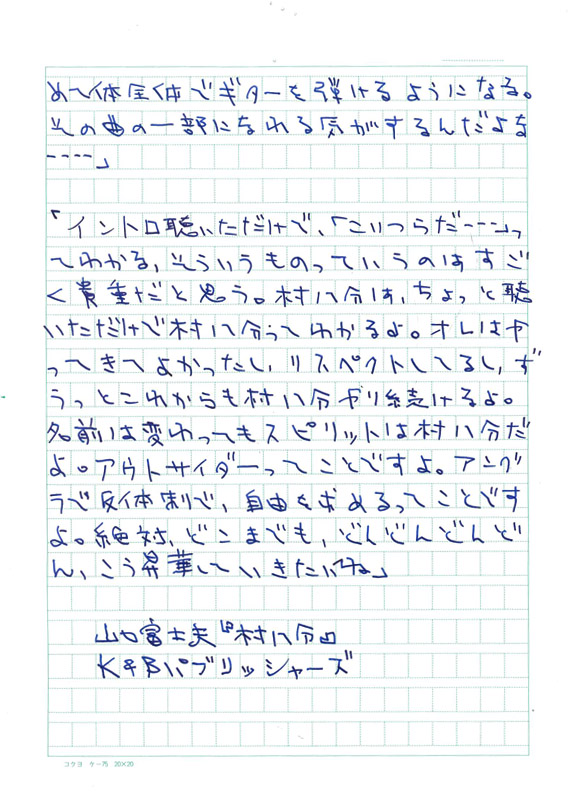 めて体全体でギターを弾けるようになる。
その曲の一部になれる気がするんだよな
----」
「イントロ聴いただけで、「こいつらだ---」っ
てわかる、そういうものっていうのはすご
く貴重だと思う。村八分は、ちょっと聴
いただけで村八分ってわかるよ。オレはや
ってきてよかったし、リスペクトしてるし、ず
うっとこれからも村八分やり続けるよ。
名前は変わってもスピリットは村八分だ
よ。アウトサイダーってことですよ。アング
ラで反体制で、自由を求めるってことです
よ。絶対、どこまでも、どんどんどんど
ん、こう昇華していきたいね」
山口富士夫『村八分』
K&Bパブリッシャーズ
コクヨ ケー75 20×20